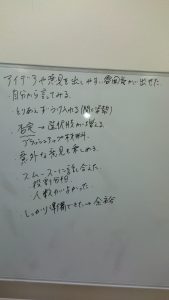 アイデアや意見を出しやすい雰囲気が出せた。
・自分から言ってみる。
・とりあえず受け入れる(聞く姿勢)
・否定→選択肢が増える
ブラッシュアップの材料。
・意外な意見も楽しめる。
・スムーズに話し合えた。
・役割分担
・人数がよかった。
・しっかり準備できた→全部